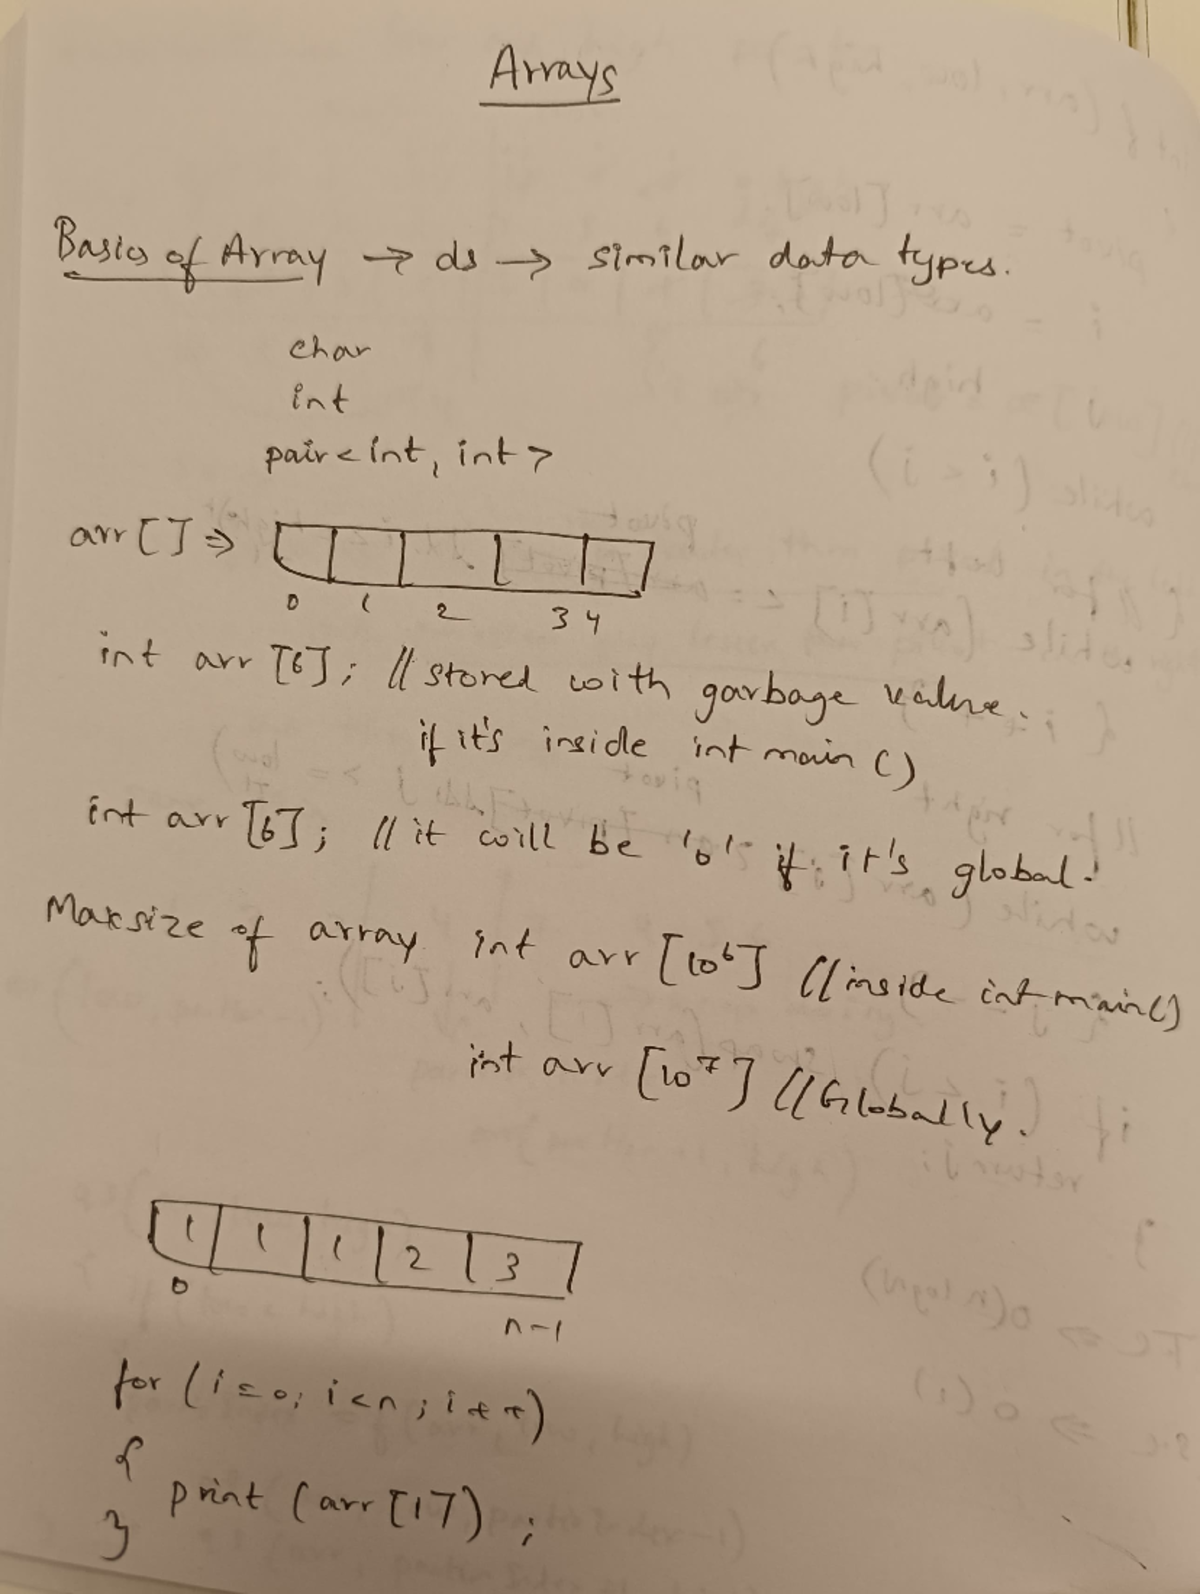 Arrays
Basics of Array → ds → similar data types.
char
int
pair<int, int>
arr[] ⇒
0 1 2 3 4
int arr [6]; // stored with garbage value.
if it's inside int main ()
int arr [6]; // it will be '0' if it's global.
Max size of array int arr [10^6] // inside int main()
int arr [10^7] // Globally.
1 1 1 2 3
0 n-1
for (i=0; i<n; i++)
{
print (arr[i]);
}